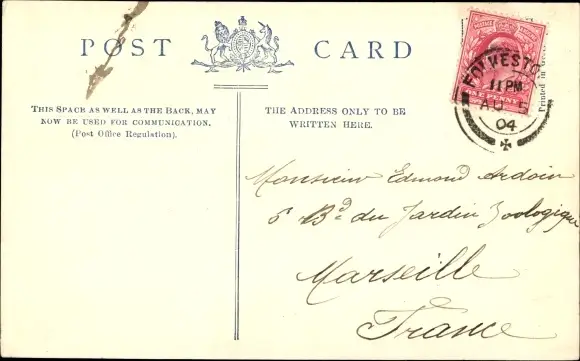 POST CARD
THIS SPACE AS WELL AS THE BACK, MAY
NOW BE USED FOR COMMUNICATION.
(Post Office Regulation).
THE ADDRESS ONLY TO BE
WRITTEN HERE.
11 PM
AU 5
04
PENNY
Printed in
Monsieur Edmond Ardoin
6 Bd du Jardin Zoologique
Marseille
France